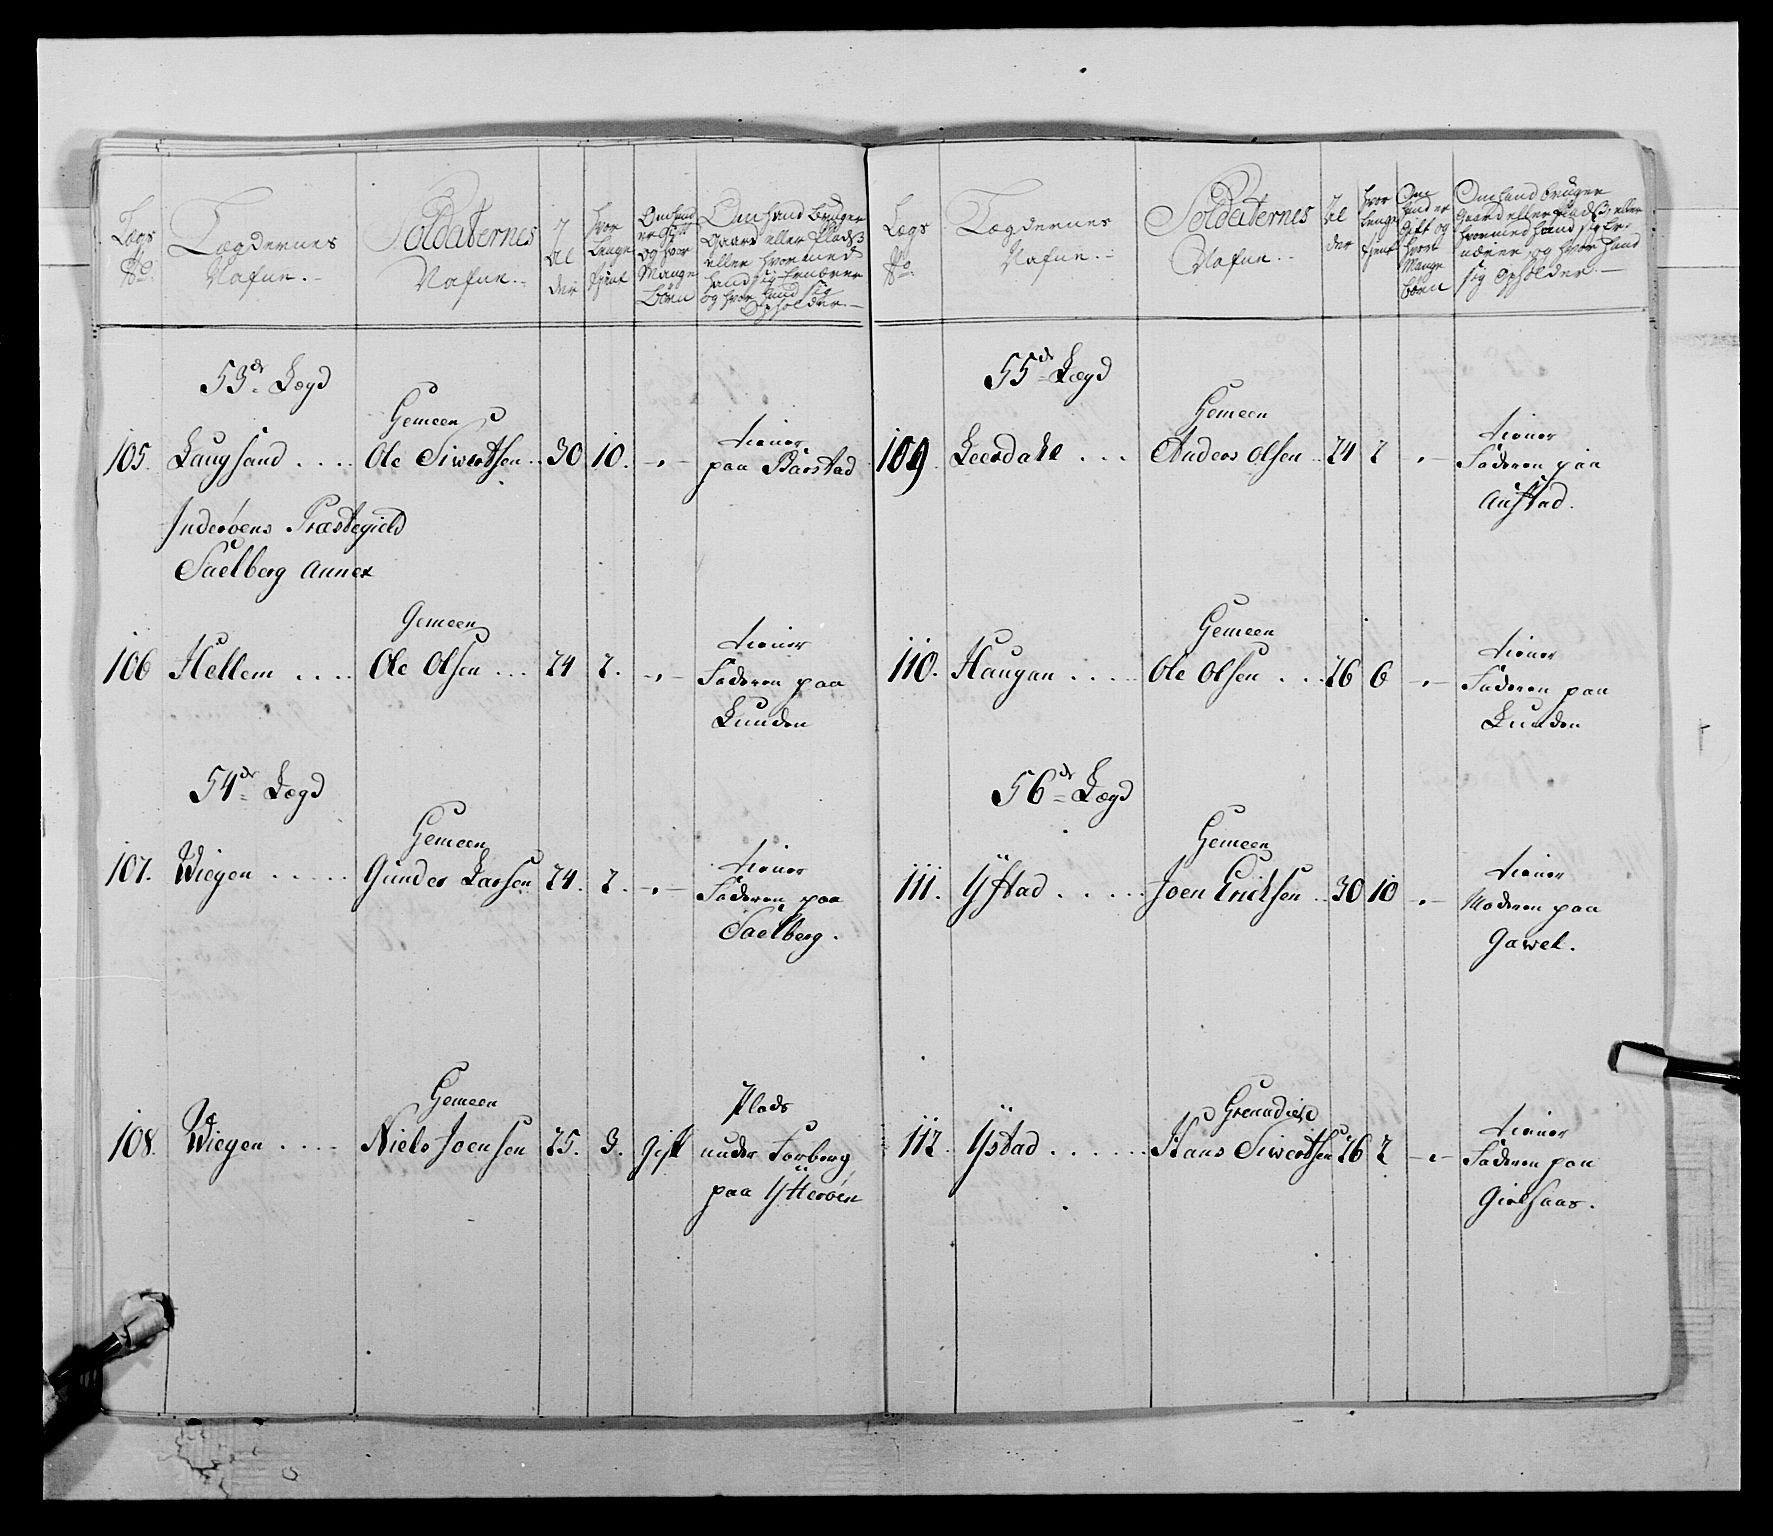 Lægs No.
Lægdernes Nafne.
Soldaternes Nafne.
Alder
hvor Længe tjent
Om hand er Gift og hvor Mange Børn
Om hand bruger Gaard eller Pladß eller hvormed hand sig Ernærer og hvor Hand sig Opholder.
53de Lægd
105. Laugsand .... Gemeen Ole Siwertsen .. 30 10. -"- tiener
paa Barstad
Inderøens Præstegield
Saelberg Annex
106 Hellem .... Gemeen Ole Olsen ... 24 2. -"- tiener
Faderen paa
Lunden
54de Lægd
107. Wiegen ..... Gemeen Gunder Larsen 24. 2. -"- tiener
Faderen paa
Saelberg.
108. Wiegen .... Gemeen Niels Joensen 25. 3. Gift Plads
under Forberg
paa Ytterøen
Lægs No.
Lægdernes Nafne.
Soldaternes Nafne.
Alder
hvor Længe tjent
Om Hand er Gift og hvor Mange børn
Om hand bruger Gaard eller Pladß, eller hvormed hand sig Ernærer og hvor Hand sig Opholder.
55de Lægd
109. Leersdahl ... Gemeen Anders Olsen .. 24 2 "- tiener
Faderen paa
Austad.
110. Haugan ..... Gemeen Ole Olsen ... 26 6 -"- tiener
Faderen paa
Lunden
56de Lægd
111. Ÿstad ..... Gemeen Joen Ericksen .. 30 10 "- tiener
Moderen paa
Gawel.
112. Ÿstad ...... Grenadier Hans Siwertsen 26 2 -"- tiener
Faderen paa